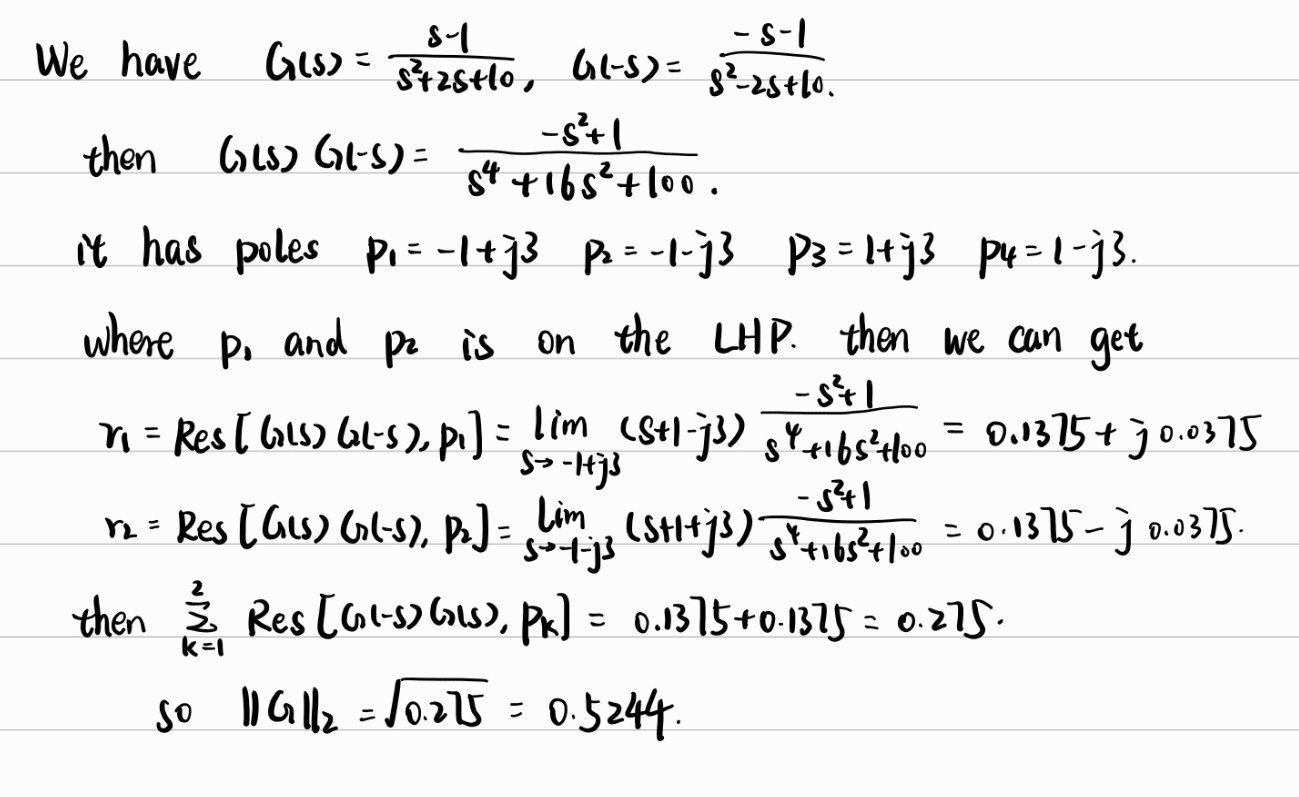 We have G(s) = \frac{s-1}{s^2+2s+10}, G(-s) = \frac{-s-1}{s^2-2s+10}.
then G(s) G(-s) = \frac{-s^2+1}{s^4+16s^2+100}.
it has poles p_1 = -1+j3 p_2 = -1-j3 p_3 = 1+j3 p_4 = 1-j3.
where p_1 and p_2 is on the LHP. then we can get
r_1 = Res[G(s) G(-s), p_1] = \lim_{s \to -1+j3} (s+1-j3) \frac{-s^2+1}{s^4+16s^2+100} = 0.1375 + j 0.0375
r_2 = Res[G(s) G(-s), p_2] = \lim_{s \to -1-j3} (s+1+j3) \frac{-s^2+1}{s^4+16s^2+100} = 0.1375 - j 0.0375.
then \sum_{k=1}^{2} Res[G(-s) G(s), p_k] = 0.1375+0.1375 = 0.275.
so ||G||_2 = \sqrt{0.275} = 0.5244.